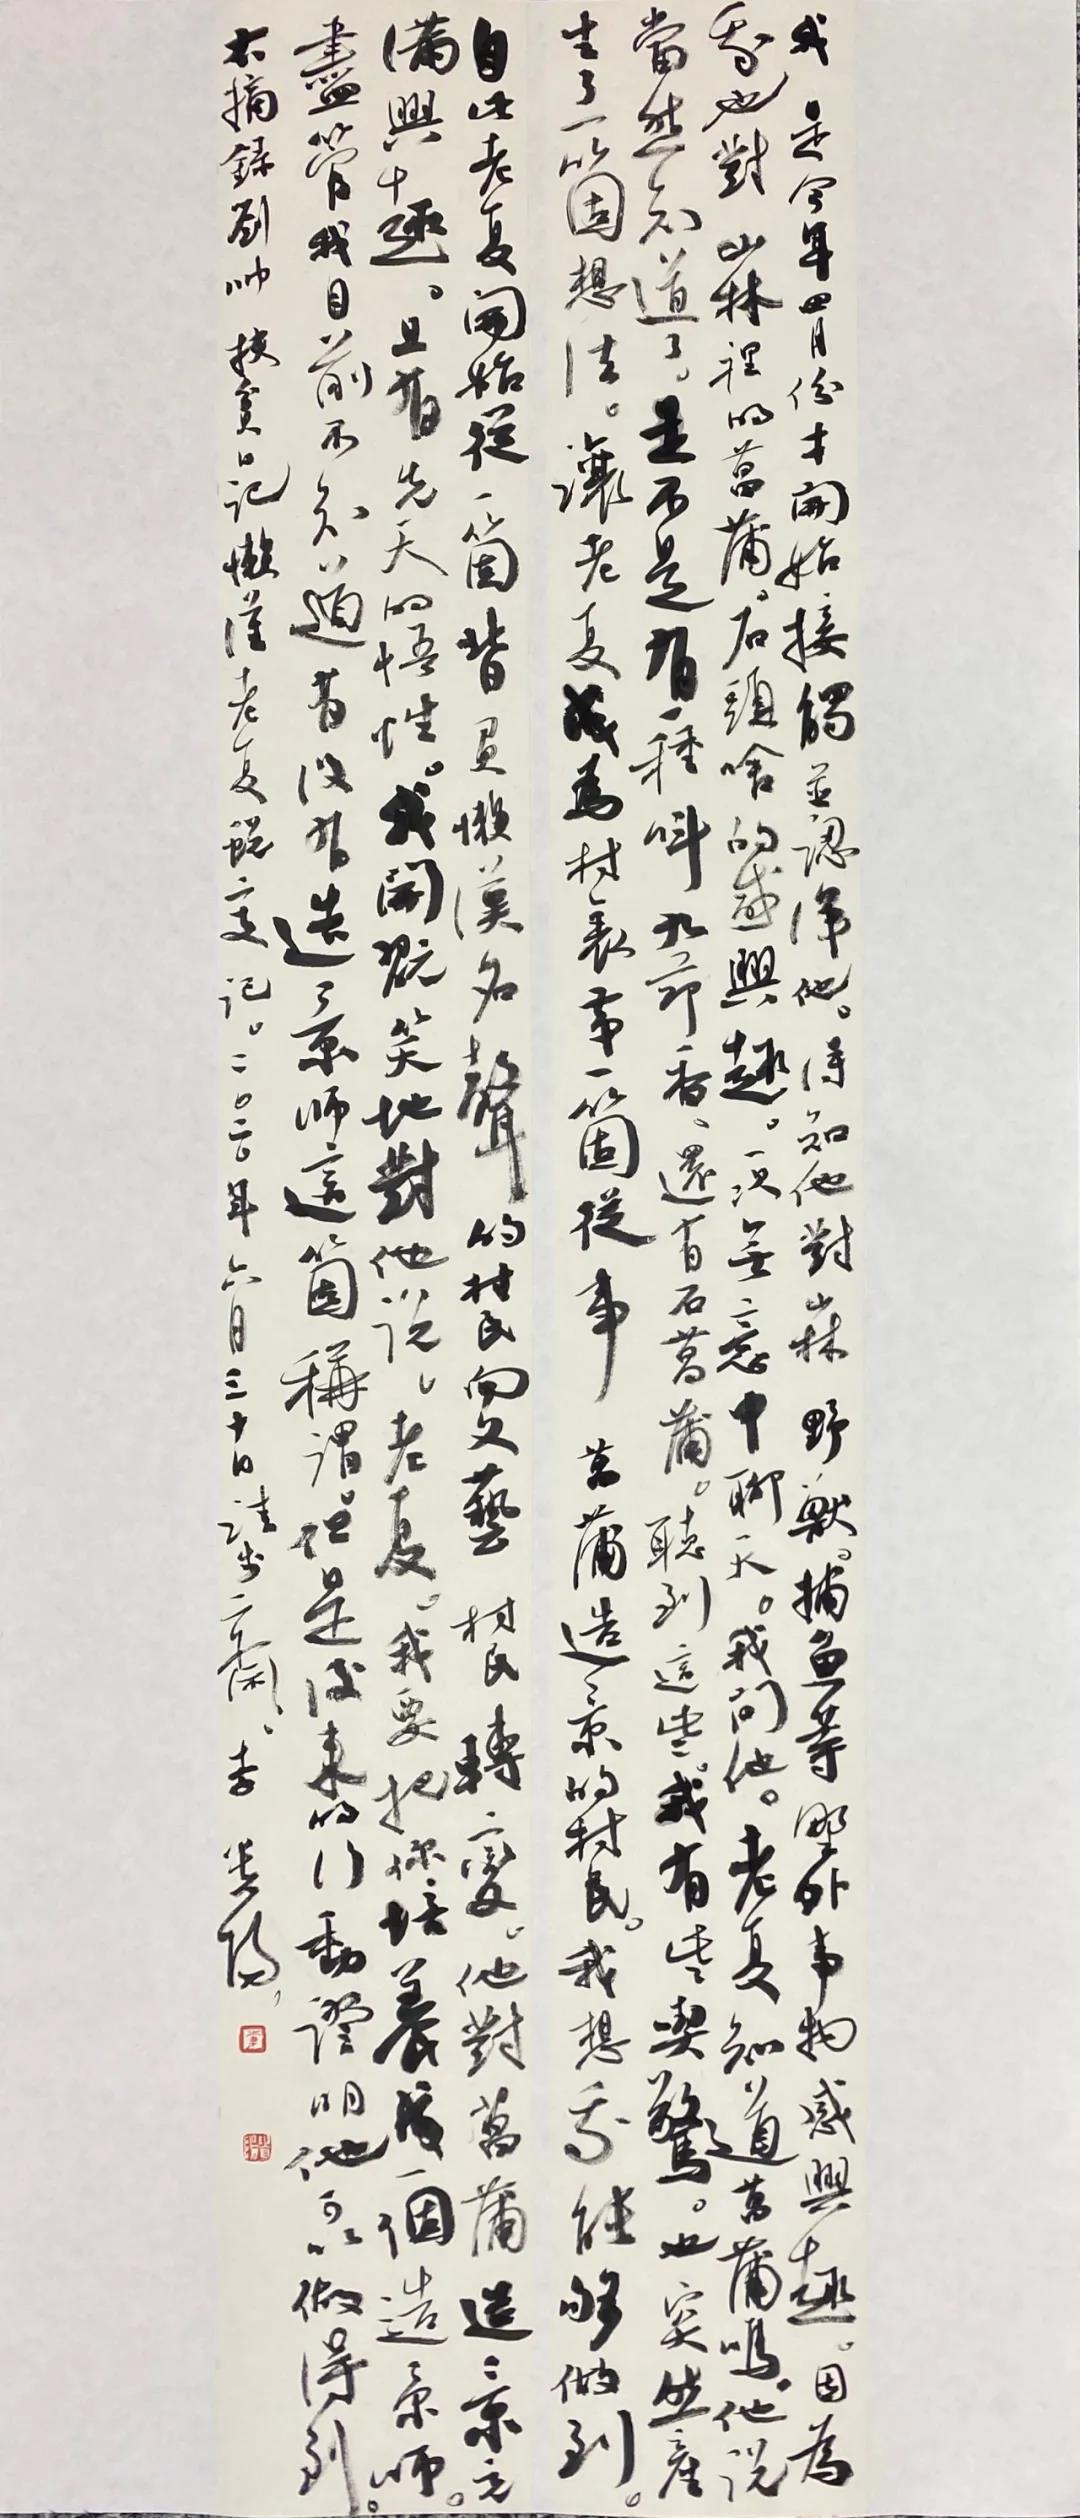 我是今年四月份才開始接觸並認識他。得知他對山林野獸。捕魚等野外事物感興趣。因為
我也對山林裡的菖蒲。石頭啥的感興趣。一次無意中聊天。我問他。老夏知道菖蒲嗎。他說
當然知道了。是不是有一種叫九節香、還有石菖蒲。聽到這些。我有些喫驚。也突然產
生了一箇想法。讓老夏成為村裏第一箇從事菖蒲造景的村民。我想我能够做到。
自此老夏開始從一箇背負懶漢名聲的村民向文藝村民轉變。他對菖蒲造景充
滿興十趣。且有先天的悟性。我開玩笑地對他說、老夏。我要把你培養成一個造景師。
盡管我目前不知道有沒有造景師這箇稱謂。但是後來的行動證明他可以做得到。
右摘錄劉帥扶貧日記懶漢老夏蛻變記。二〇二〇年六月三十日 李